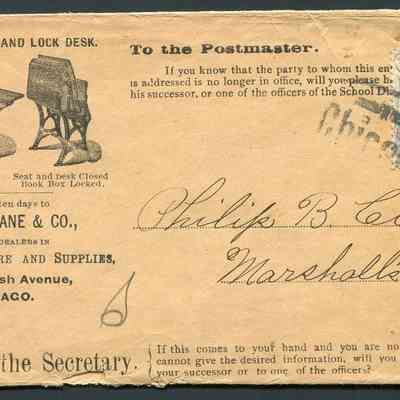 AND LOCK DESK.
Seat and Desk Closed
Book Box Locked.
ten days to
ANE & CO.,
DEALERS IN
RE AND SUPPLIES,
sh Avenue,
AGO.
the Secretary.
To the Postmaster.
If you know that the party to whom this en
is addressed is no longer in office, will you please h
his successor, or one of the officers of the School Di
Chica
Philip B. Co
Marshalls
If this comes to your hand and you are no
give the desired information, will you
your successor or to one of the officers?